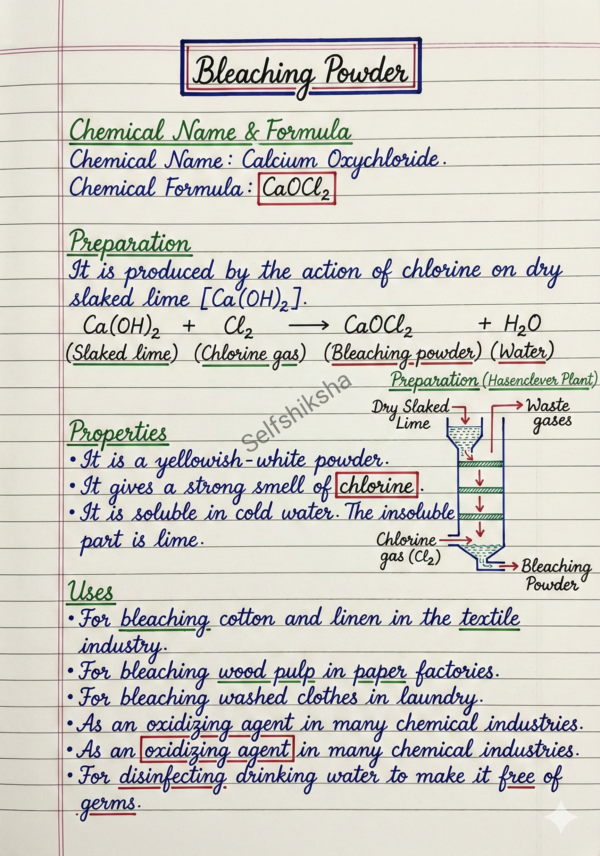 Bleaching Powder
Chemical Name & Formula
Chemical Name: Calcium Oxychloride.
Chemical Formula: CaOCl₂
Preparation
It is produced by the action of chlorine on dry
slaked lime [Ca(OH)₂].
Ca(OH)₂ + Cl₂ ⟶ CaOCl₂ + H₂O
(Slaked lime) (Chlorine gas) (Bleaching powder) (Water)
Preparation (Hasenclever Plant)
Dry Slaked
Lime
Waste
gases
Chlorine
gas (Cl₂)
Bleaching
Powder
Selfshiksha
Properties
• It is a yellowish-white powder.
• It gives a strong smell of chlorine.
• It is soluble in cold water. The insoluble
part is lime.
Uses
• For bleaching cotton and linen in the textile
industry.
• For bleaching wood pulp in paper factories.
• For bleaching washed clothes in laundry.
• As an oxidizing agent in many chemical industries.
• As an oxidizing agent in many chemical industries.
• For disinfecting drinking water to make it free of
germs.